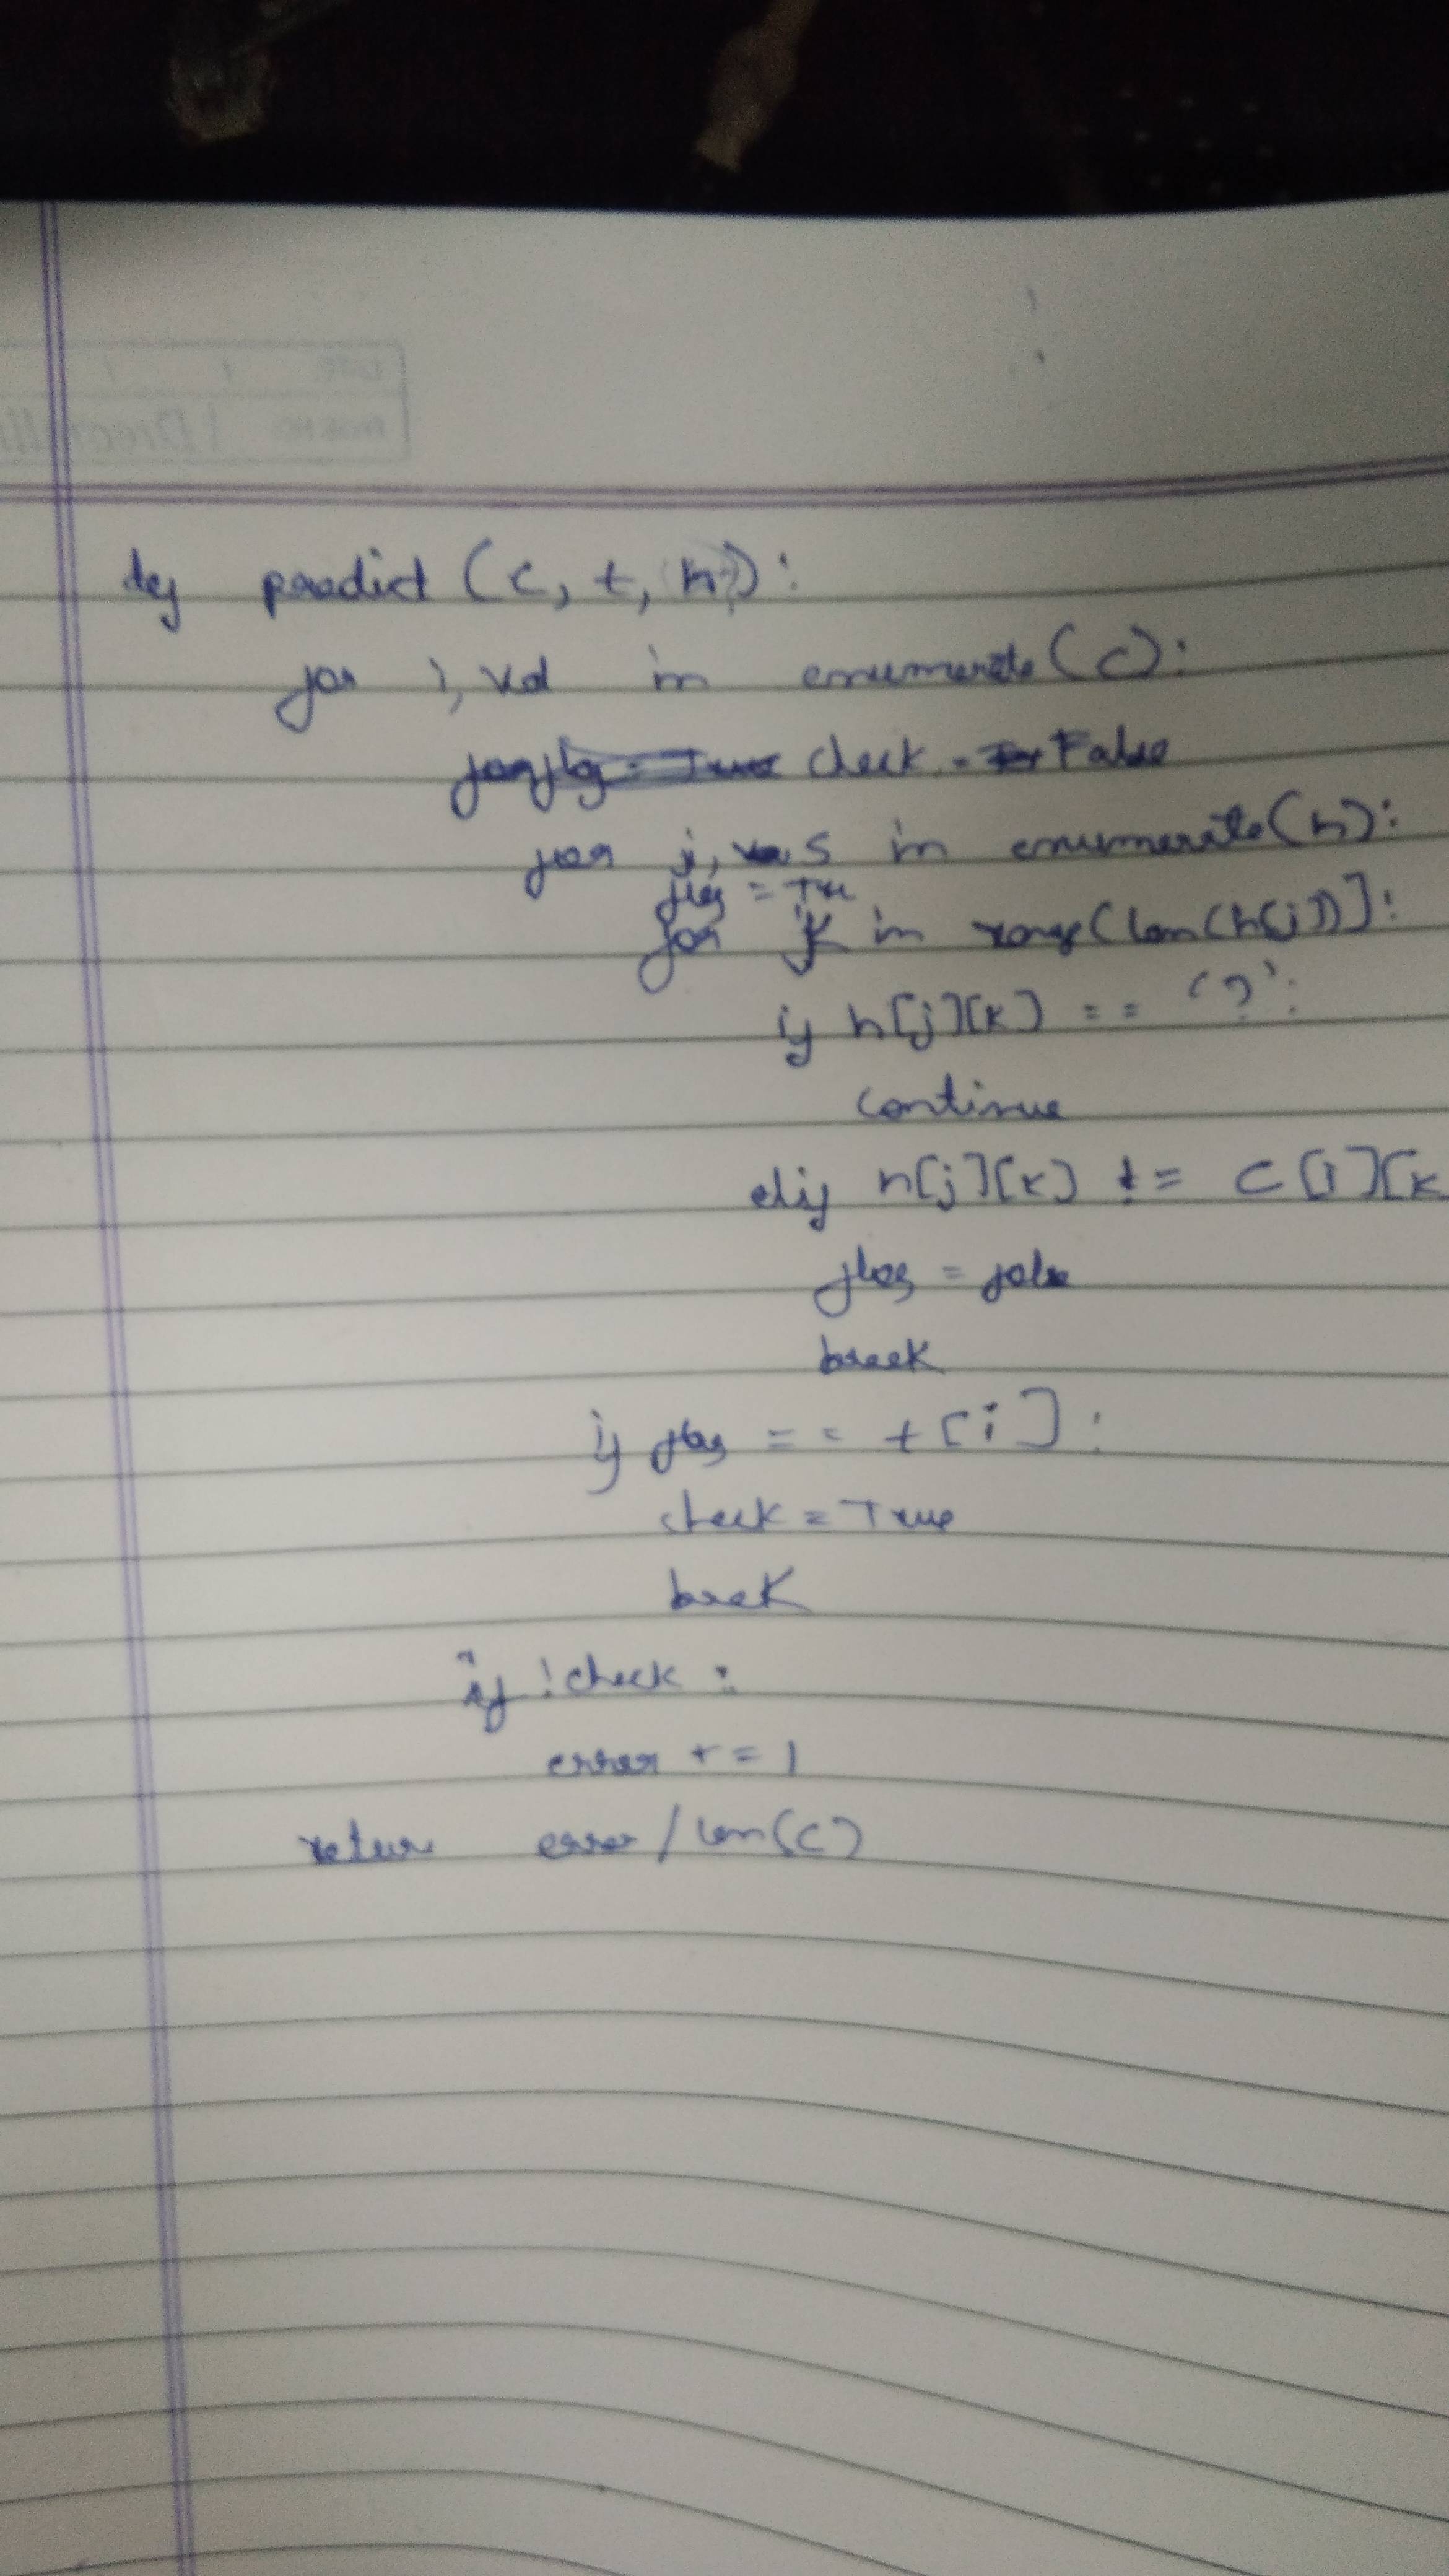 def predict (c, t, h):
for i, val in enumerate(c):
check = False
for j, s in enumerate(h):
flag = Tru
for k in range(len(h[j])]:
if h[j][k] == '?':
continue
elif h[j][k] != c[i][k
flag = false
break
if flag == t[i]:
check = True
brek
if !check:
error += 1
retur error/len(c)